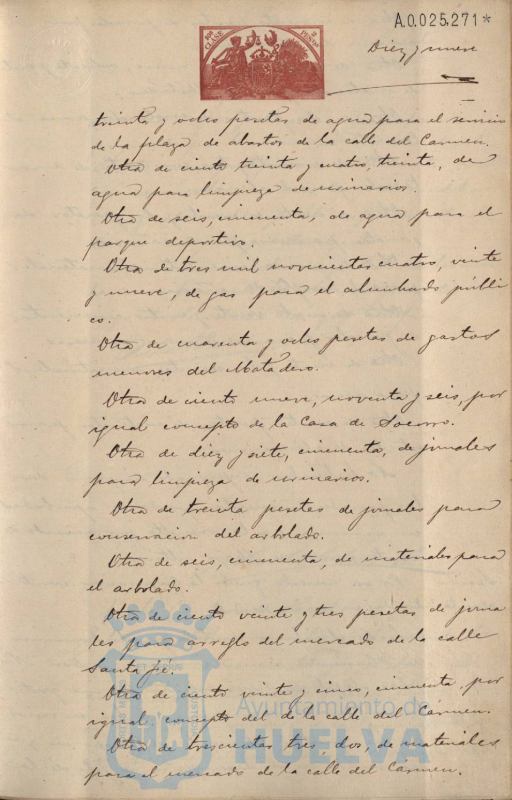 A.0.025.271*
10ª CLASE 2 PESETAS
Diez y nueve
treinta y ocho pesetas de agua para el servicio
de la plaza de abastos de la calle del Carmen.
Otra de ciento treinta y cuatro, treinta, de
agua para limpieza de urinarios.
Otra de seis, cincuenta, de agua para el
parque deportivo.
Otra de tres mil novecientas cuatro, veinte
y nueve, de gas para el alumbrado públi
co.
Otra de cuarenta y ocho pesetas de gastos
menores del Matadero.
Otra de ciento nueve, noventa y seis, por
igual concepto de la Casa de Socorro.
Otra de diez y siete, cincuenta, de jornales
para limpieza de urinarios.
Otra de treinta pesetas de jornales para
conservacion del arbolado.
Otra de seis, cincuenta, de materiales para
el arbolado.
Otra de ciento veinte y tres pesetas de jorna
les para arreglo del mercado de la calle
Santa Fé.
Otra de ciento veinte y cinco, cincuenta, por
igual concepto del de la calle del Carmen.
Otra de trescientas tres, dos, de materiales
para el mercado de la calle del Carmen.
Ayuntamiento de
HUELVA